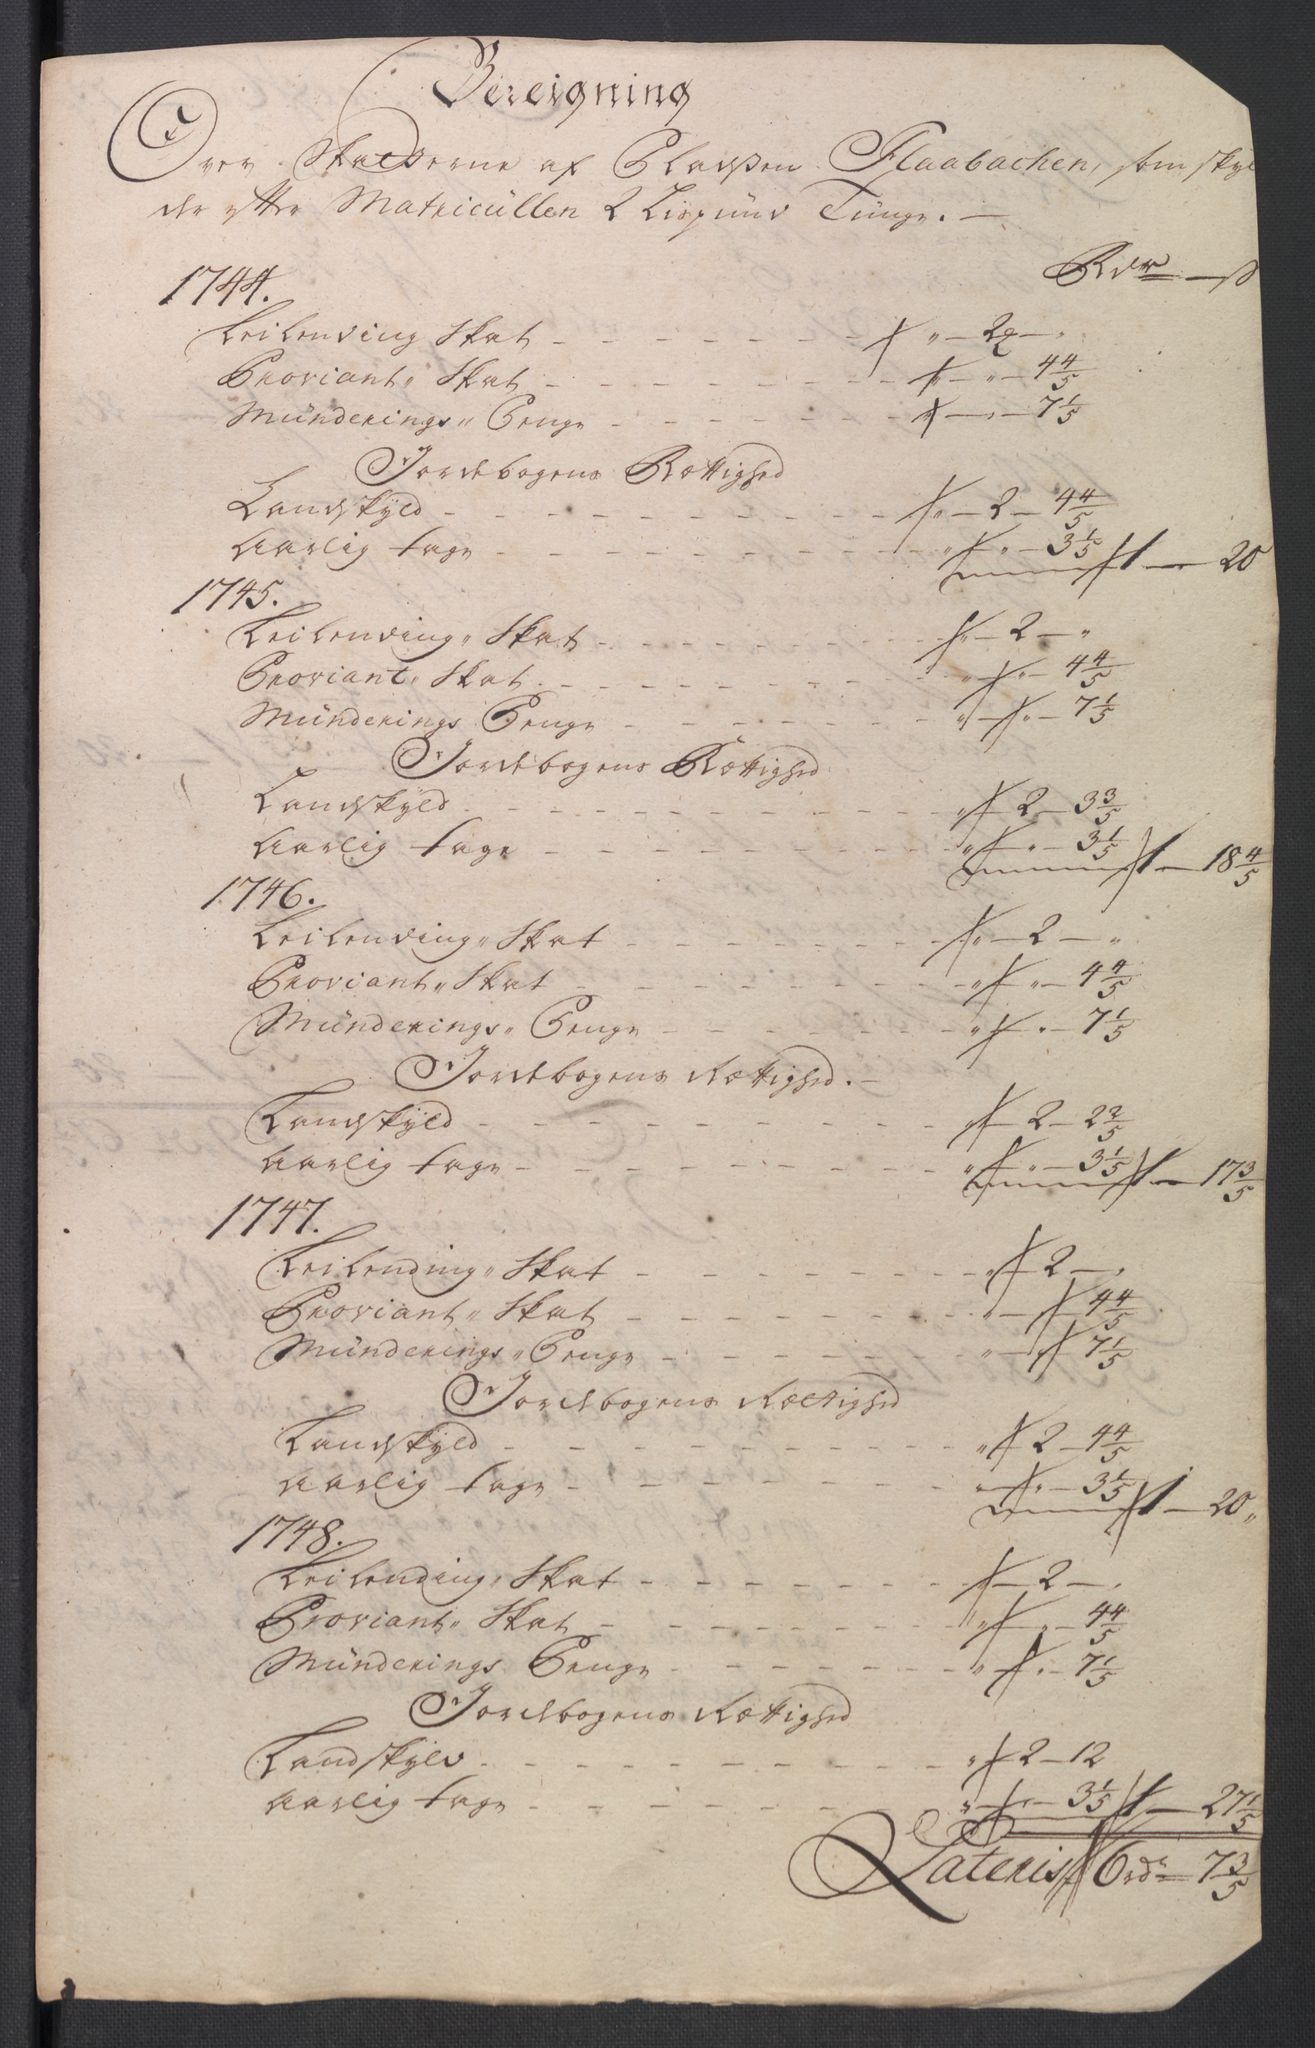 Bereigning
Over Skatterne af Pladsen Flaabachen, som skyl
der efter Matricüllen 2 Lispund Tünge. —
Rdr — ß
1744.
Leilending Skat - - - " — 2 — "
Proviant " Skat - - - " — " — 4 4/5
Münderings " Penge - - - — " — 7 1/5
Jordebogens Rettighed
Landskyld - - - " — 2 — 4 4/5
Aarlig tage - - - " " — 3 1/5 1 — 20
1745.
Leilending " Skat - - - " — 2 — "
Proviant " Skat - - - " " — 4 4/5
Münderings Penge - - - " — " — 7 1/5
Jordebogens Rettighed
Landskyld - - - " 2 — 3 3/5
Aarlig tage - - - " " — 3 1/5 1 — 18 4/5
1746.
Leilending " Skat - - - " — 2 — "
Proviant " Skat - - - " " — 4 4/5
Münderings " Penge - - - " " — 7 1/5
Jordebogens Rettighed. —
Landskyld - - - " 2 — 2 2/5
Aarlig tage - - - " " — 3 1/5 1 — 17 3/5
1747.
Leilending " Skat - - - " 2 — "
Proviant " Skat - - - " — 4 4/5
Münderings " Penge - - - " — 7 1/5
Jordebogens Rettighed
Landskyld - - - " 2 — 4 4/5
Aarlig tage - - - " " — 3 1/5 1 — 20 "
1748.
Leilending " Skat - - - — 2 — "
Proviant " Skat - - - " " — 4 4/5
Münderings Penge - - - " " — 7 1/5
Jordebogens Rettighed
Landskyld - - - " 2 — 12
Aarlig tage - - - " " — 3 1/5 1 — 27 1/5
Lateris 6 rdr 7 3/5